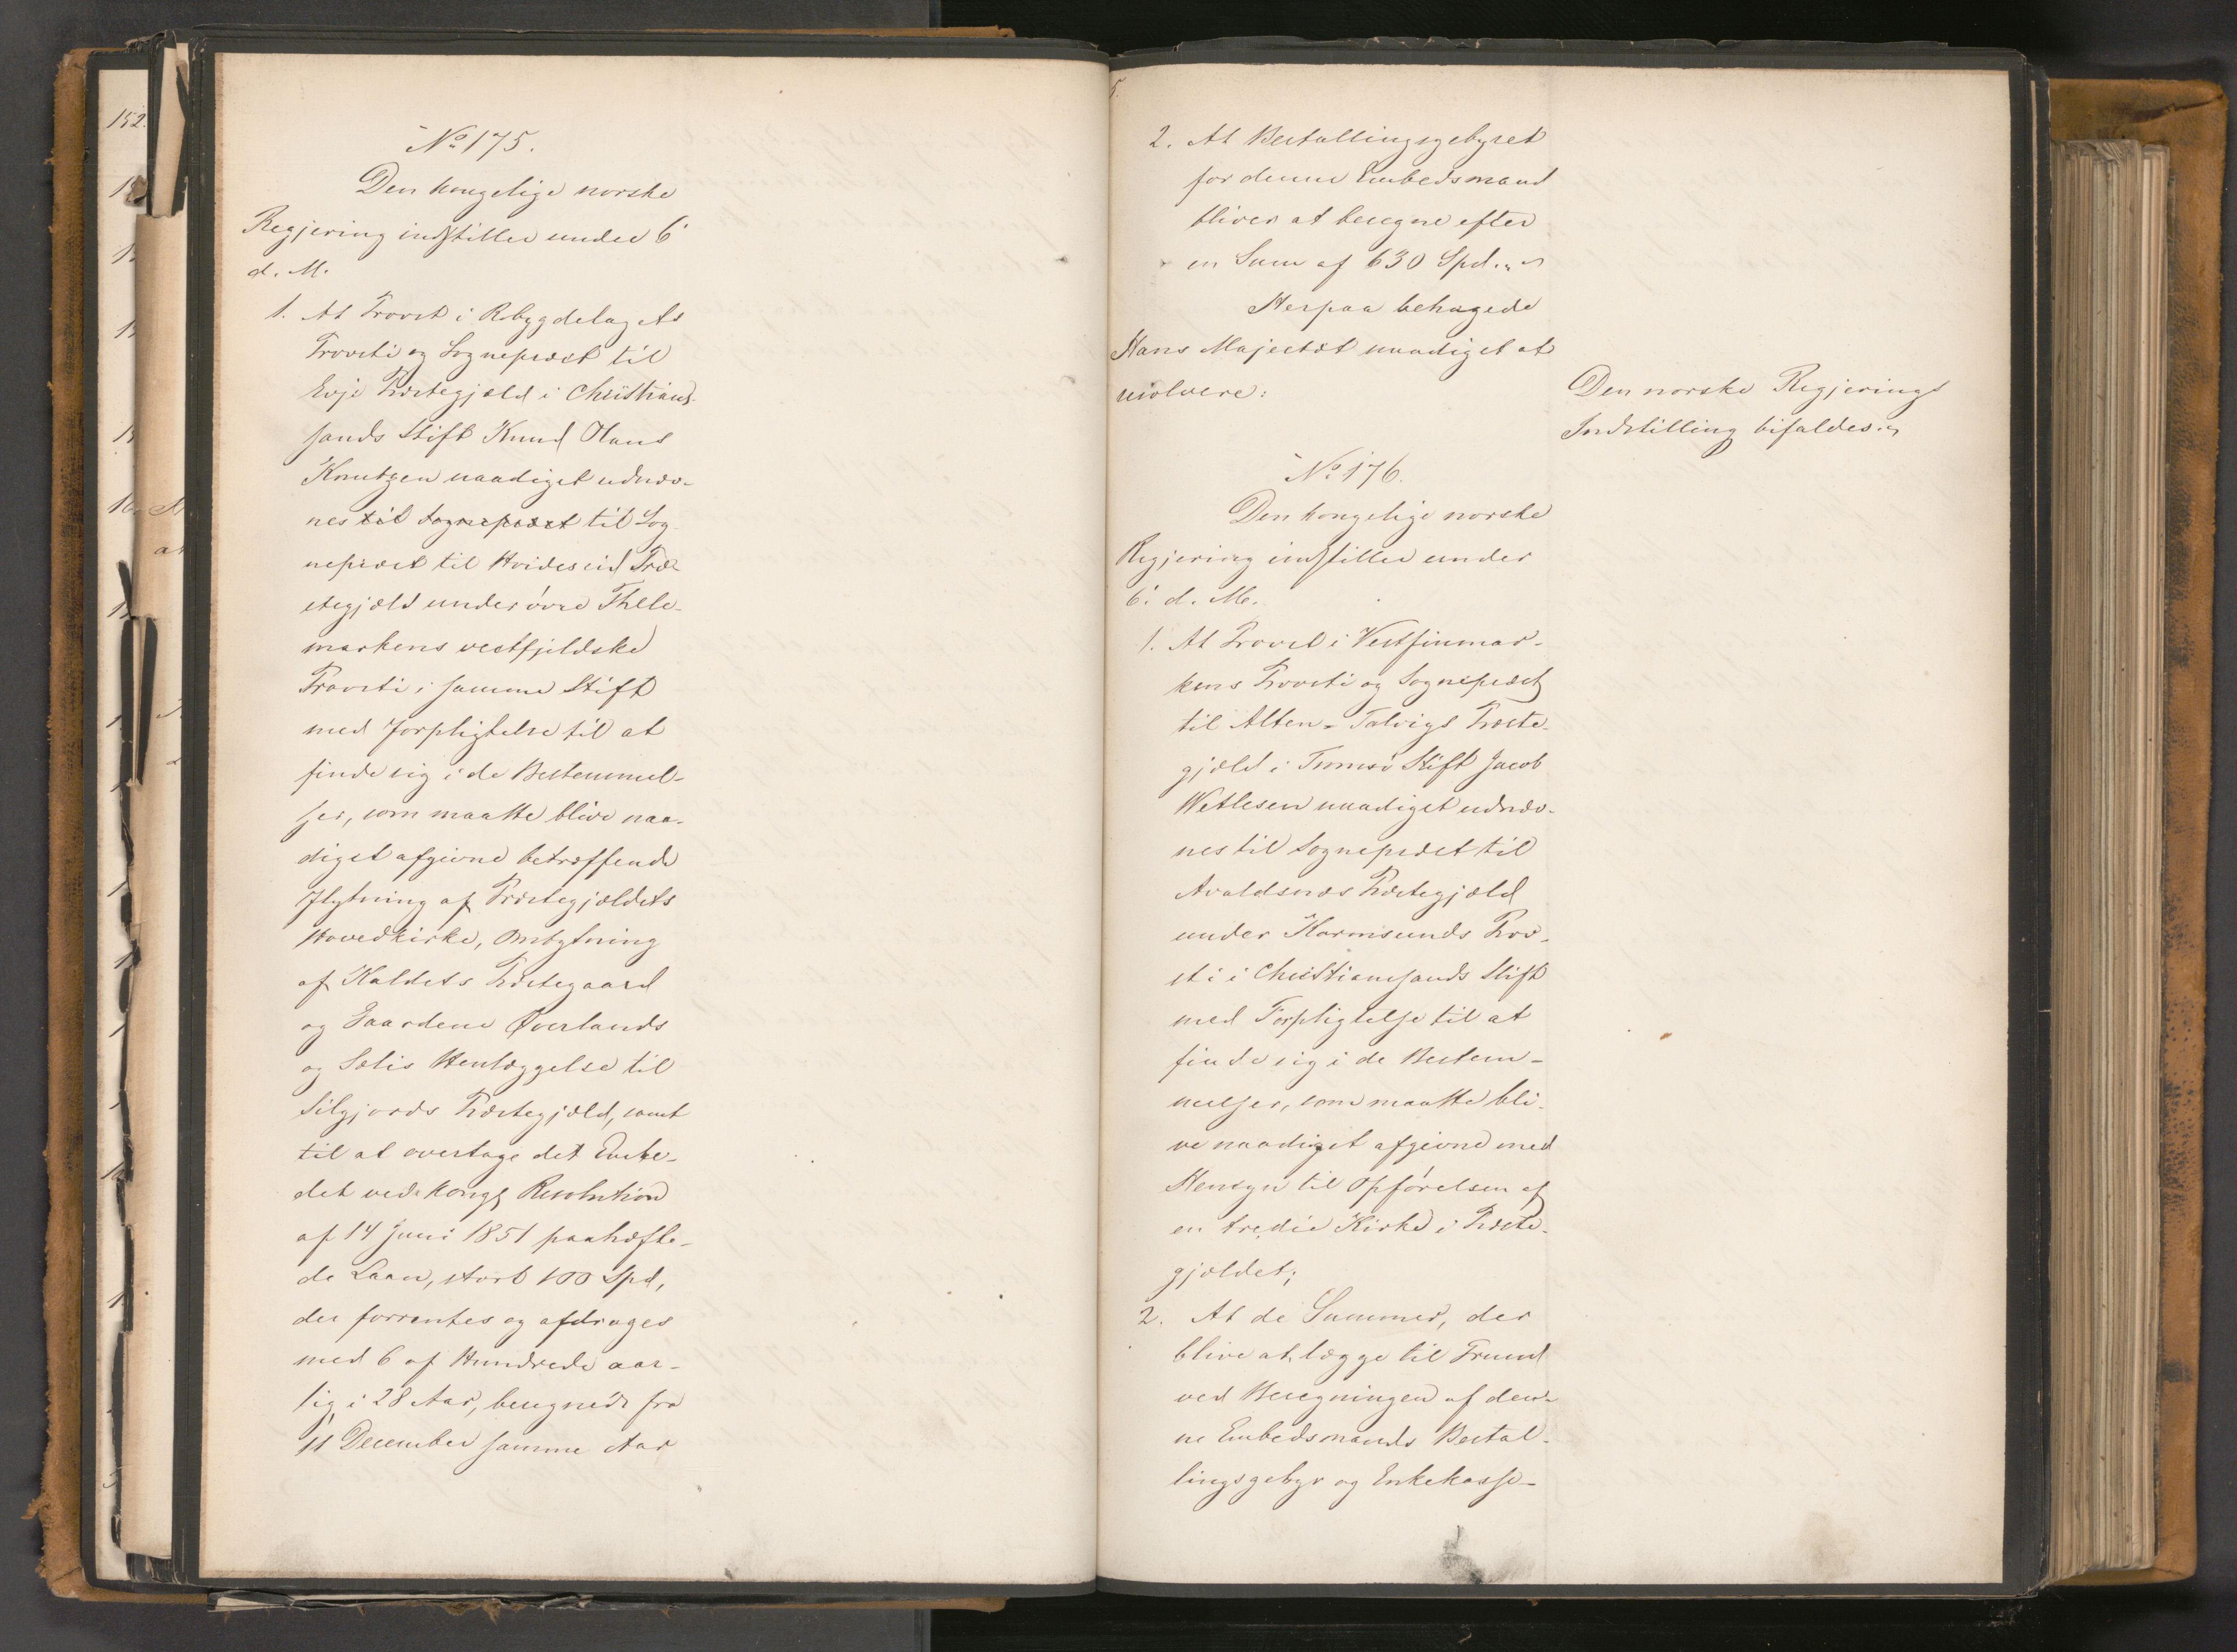 No 175.
Den kongelige norske
Regjering indstiller under 6'
d. M.
1. At Provst i Robygdelagets
Provsti og Sognepræst til
Evje Præstegjæld i Christian-
sands Stift Knud Olaus
Knutzen naadigst udnæv-
nes til Sognepræst til Sog-
nepræst til Hvideseid Præ-
stegjæld under øvre Thele-
markens vestfjeldske
Provsti i samme Stift
med Forpligtelse til at
finde sig i de Bestemmel-
ser, som maatte blive naa-
digst afgivne betræffende
Flytning af Præstegjældets
Hovedkirke, Ombytning
af Kaldets Præstegaard
og Gaardene Øverlands
og Henlæggelse til
Silgjords Præstegjæld, samt
til at overtage det Embe-
det ved kongl Resolution
af 14 Juni 1851 paahæfte-
de Laan, stort 100 Spd,
der forrentes og afdrages
med 6 af Hundrede aar-
lig i 28 Aar, beregnede fra
11 December samme Aar
2. At Bestallingsgebyret
for denne Embedsmand
bliver at beregne efter
en Sum af 630 Spd.
Herpaa behagede
Hans Majestæt naadigst at
resolvere:
Den norske Regjerings
Indstilling bifaldes.
No 176.
Den kongelige norske
Regjering indstiller under
6' d. M.
1. At Provst i Vestfinmar-
kens Provsti og Sognepræst
til Alten-Talvigs Præste-
gjæld i Tromsø Stift Jacob
Wetlesen naadigst udnæv-
nes til Sognepræst til
Avaldsnæs Præstegjæld
under Karmsunds Prov-
sti i Christiansands Stift
med Forpligtelse til at
finde sig i de Bestem-
melser, som maatte bli-
ve naadigst afgivne med
Hensyn til Opførelsen af
en tredie Kirke i Præste-
gjældet;
2. At de Summer, der
blive at lægge til Grund
ved Beregningen af den-
ne Embedsmands Bestal-
lingsgebyr og Enkekasse-